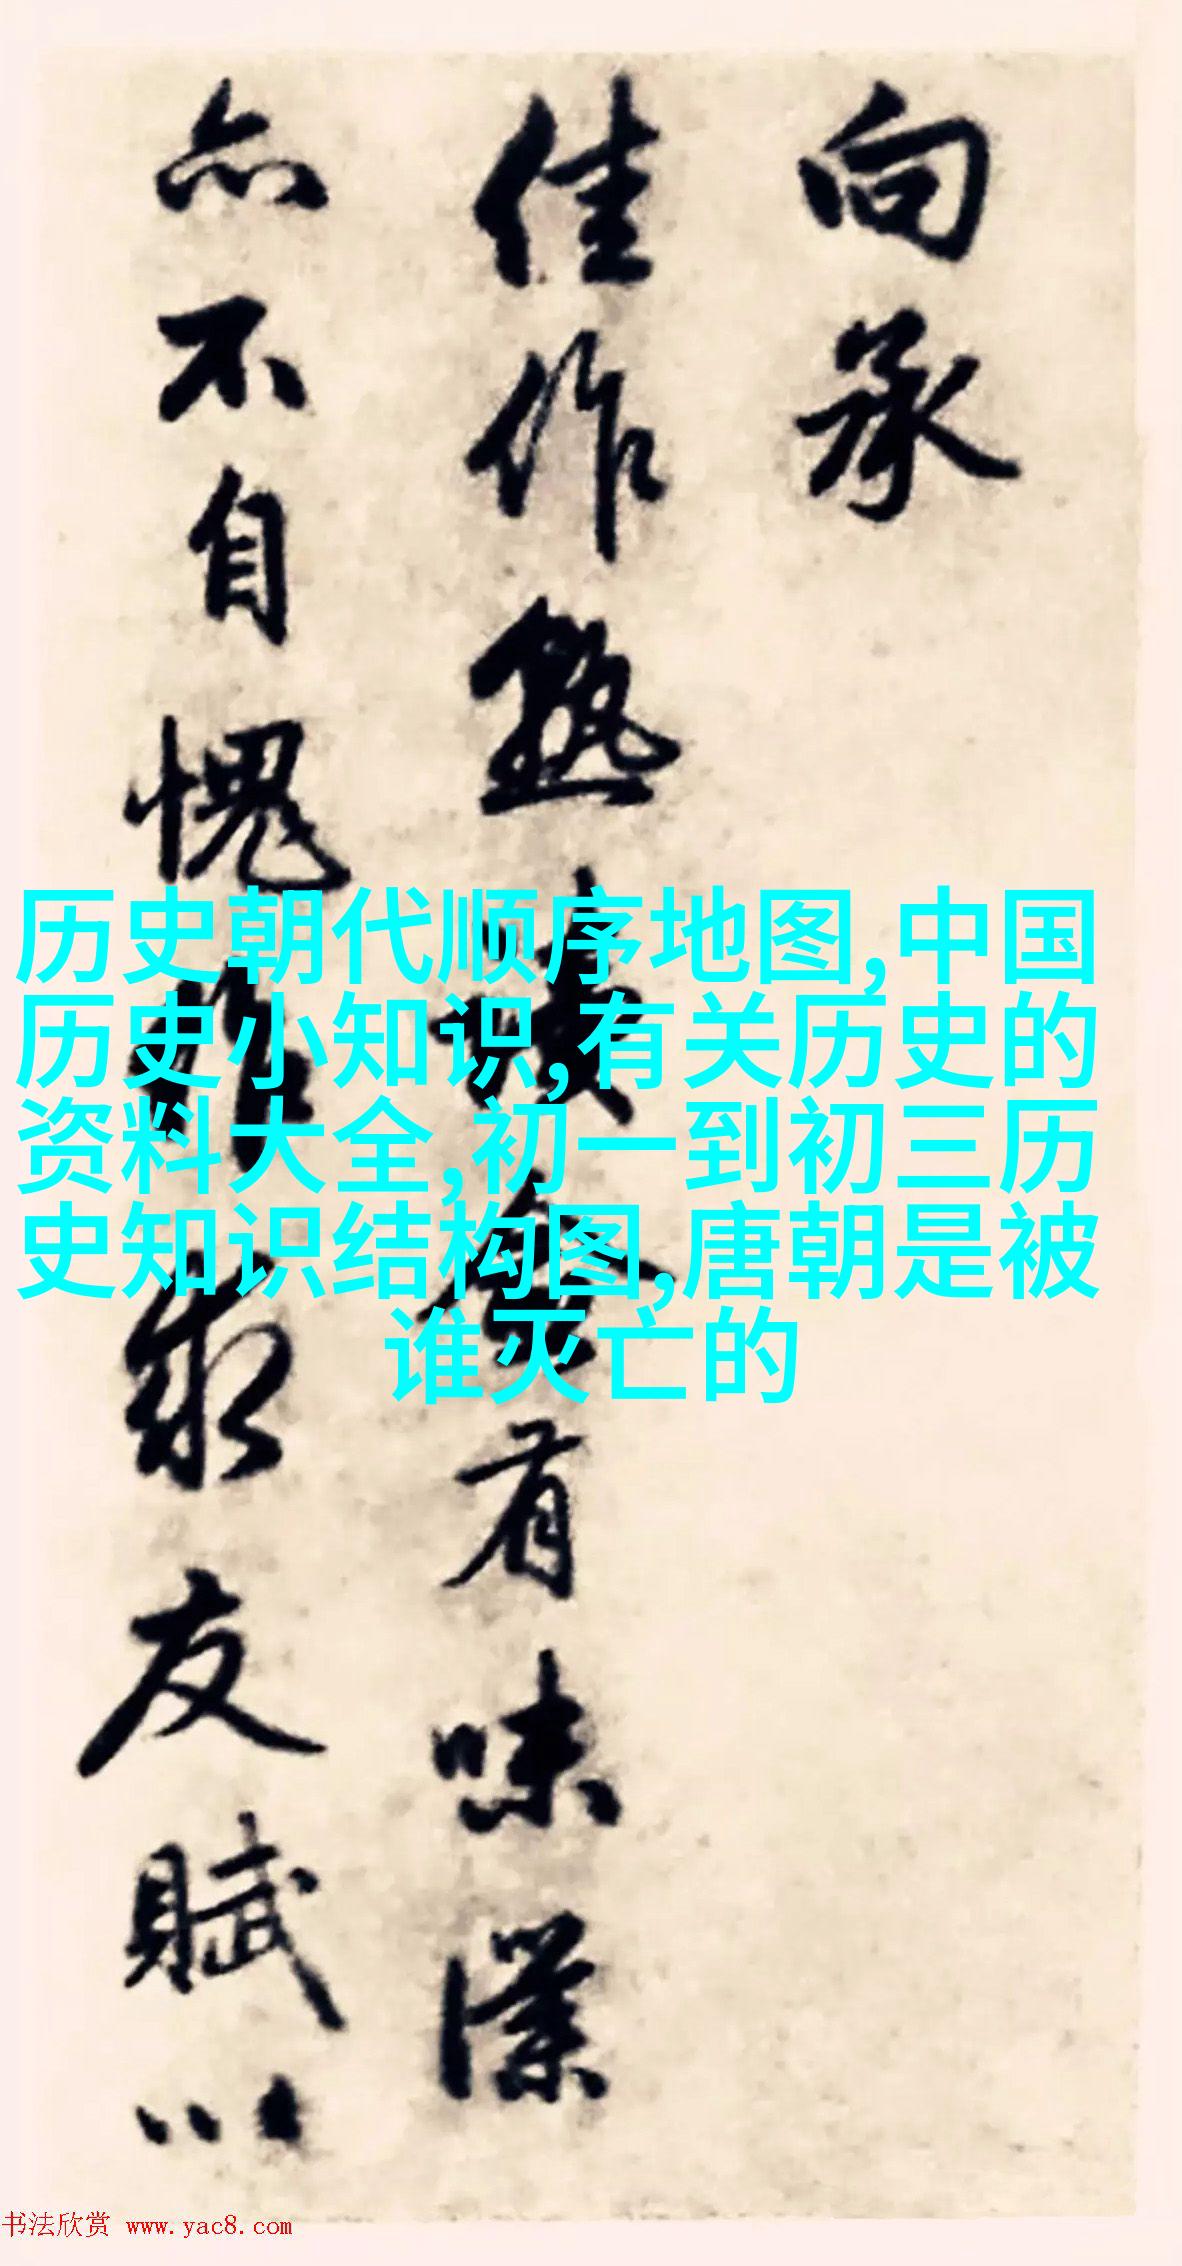 向承
佳作熟有味
亦不自愧作求友賦以
历史朝代顺序地图,中国
历史小知识,有关历史的
资料大全,初一到初三历
史知识结构图,唐朝是被
谁灭亡的
书法欣赏 www.yac8.com